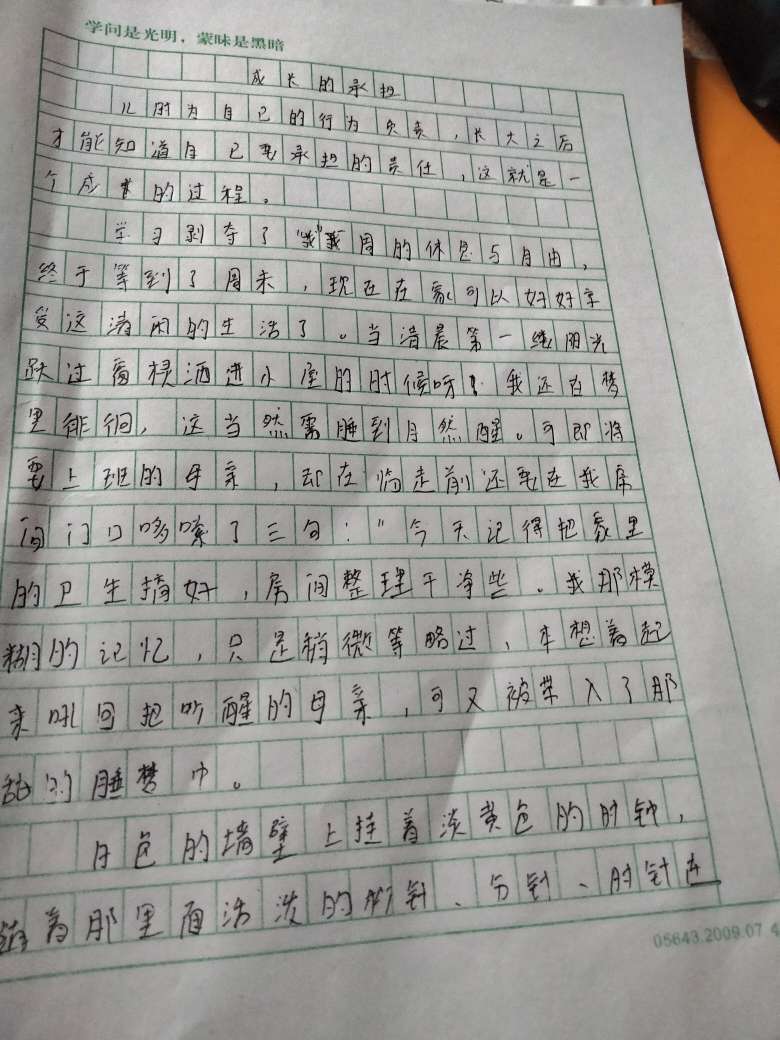 学问是光明，蒙昧是黑暗
成长的承担
儿时为自己的行为负责，长大之后
才能知道自己要承担的责任，这就是一
个成长的过程。
学习剥夺了我周的休息与自由，
终于等到了周末，现在在家可以好好享
受这清闲的生活了。当清晨第一缕阳光
跃过窗棂洒进小屋的时候呀！我还在梦
里徘徊，这当然需睡到自然醒。可即将
要上班的母亲，却在临走前还要在我房
间门口哆嗦了三句："今天记得把家里
的卫生搞好，房间整理干净些。我那模
糊的记忆，只是稍微等略过，本想着起
来吼回把吵醒的母亲，可又被带入了那
甜的睡梦中。
白色的墙壁上挂着淡黄色的时钟，
着那里面活泼的秒针、分针、时针在
05643.2009.07